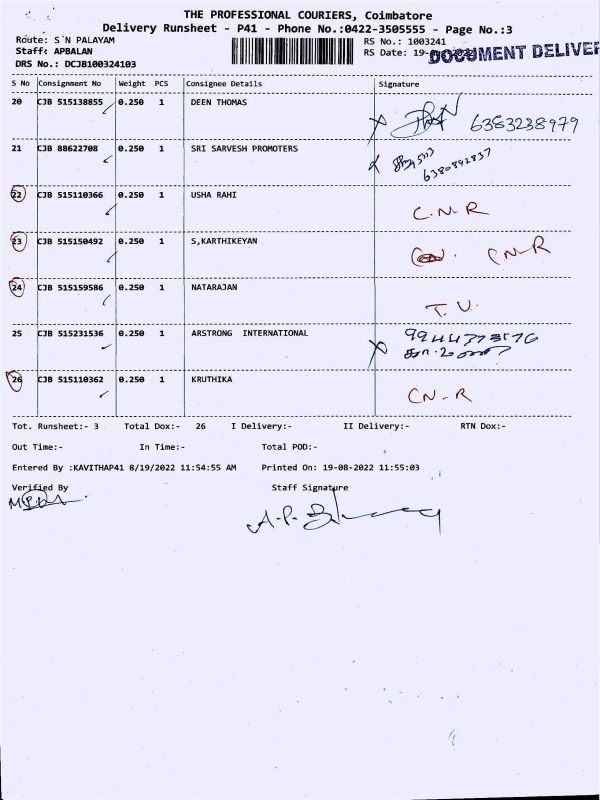 THE PROFESSIONAL COURIERS, Coimbatore
Delivery Runsheet - P41 - Phone No.:0422-3505555 - Page No.:3
Route: S N PALAYAM
RS No.: 1003241
Staff: APBALAN
RS Date: 19-
DOCUMENT DELIVER
DRS No.: DCJB100324103
S No Consignment No Weight PCS Consignee Details Signature
20 CJB 515138855 0.250 1 DEEN THOMAS 6383238979
21 CJB 88622708 0.250 1 SRI SARVESH PROMOTERS
6380892837
22 CJB 515110366 0.250 1 USHA RAHI C.N.R
23 CJB 515150492 0.250 1 S,KARTHIKEYAN CN-R
24 CJB 515159586 0.250 1 NATARAJAN T.V.
25 CJB 515231536 0.250 1 ARSTRONG INTERNATIONAL
26 CJB 515110362 0.250 1 KRUTHIKA CN-R
Tot. Runsheet:- 3 Total Dox:- 26 I Delivery:- II Delivery:- RTN Dox:-
Out Time:- In Time:- Total POD:-
Entered By :KAVITHAP41 8/19/2022 11:54:55 AM Printed On: 19-08-2022 11:55:03
Verified By Staff Signature